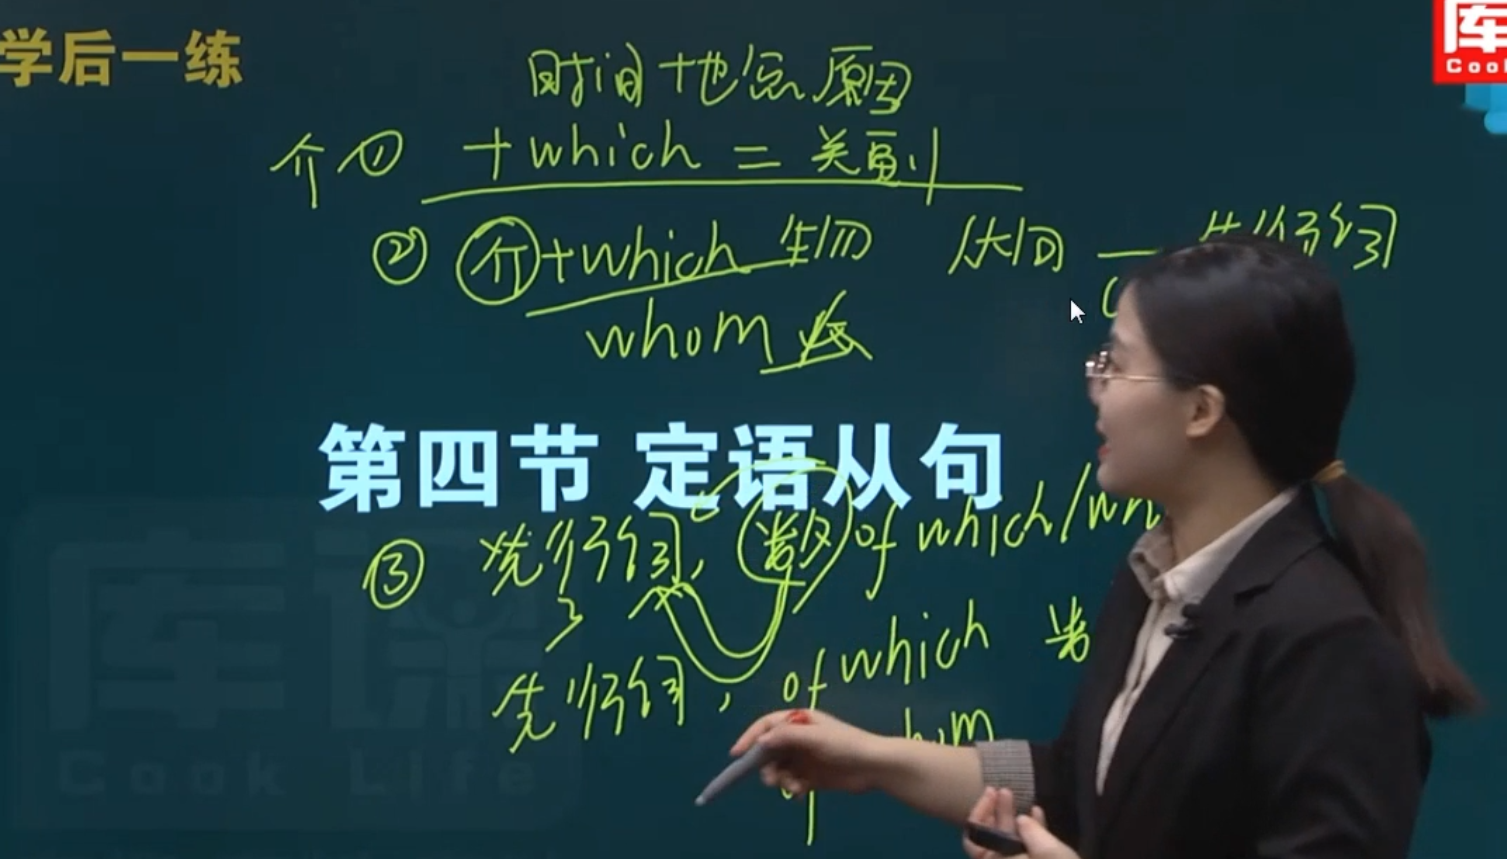 学后一练
库
Cook
时间 地点 原因
介 ① +which = 关副
② 介+which 生物
whom 人
从句 — 先行词
第四节 定语从句
③ 先行词, 数 of which/wh
先行词, of which 数
whom
库课
Cook Life